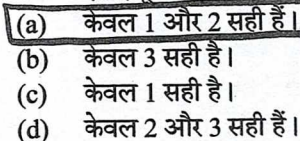 (a) केवल 1 और 2 सही हैं।
(b) केवल 3 सही है।
(c) केवल 1 सही है।
(d) केवल 2 और 3 सही हैं।